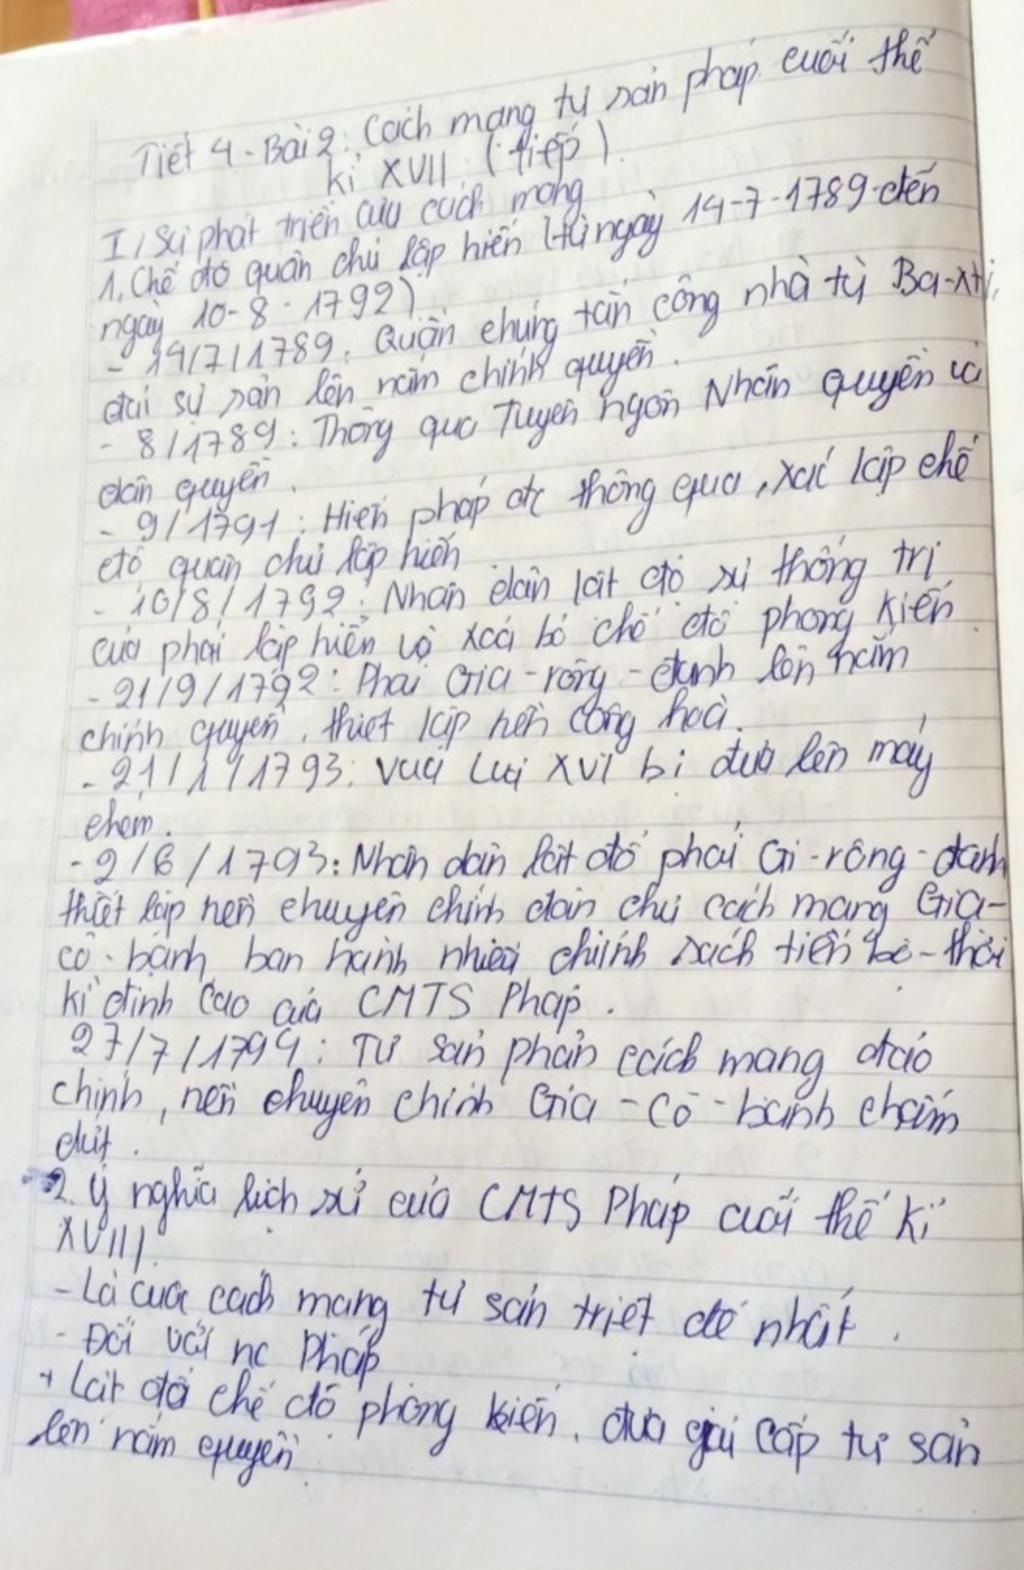 Tiết 4 - Bài 2: Cách mạng tư sản pháp cuối thế
kỉ XVII (tiếp).
I/ Sự phát triển của cách mạng
1. Chế độ quân chủ lập hiến (từ ngày 14-7-1789 đến
ngày 10-8-1792)
- 14/7/1789: Quần chúng tấn công nhà tù Ba-xti,
đại tư sản lên nắm chính quyền.
- 8/1789: Thông qua Tuyên ngôn Nhân quyền và
dân quyền.
- 9/1791: Hiến pháp đc thông qua, xác lập chế
độ quân chủ lập hiến
- 10/8/1792: Nhân dân lật đổ sự thống trị
của phái lập hiến và xoá bỏ chế độ phong kiến.
- 21/9/1792: Phái Gia-rông-đanh lên nắm
chính quyền, thiết lập nền cộng hoà.
- 21/1/1793: Vua Lui XVI bị đưa lên máy
chém.
- 2/6/1793: Nhân dân lật đổ phái Gi-rông-đanh
thiết lập nền chuyên chính dân chủ cách mạng Gia-
cô-banh, ban hành nhiều chính sách tiến bộ - thời
kì đỉnh cao của CMTS Pháp.
27/7/1794: Tư sản phản cách mạng đảo
chính, nền chuyên chính Gia-cô-banh chấm
dứt.
2. Ý nghĩa lịch sử của CMTS Pháp cuối thế kỉ
XVIII
- Là cuộc cách mạng tư sản triệt để nhất.
- Đối với nc Pháp
+ Lật đổ chế độ phong kiến, đưa giai cấp tư sản
lên nắm quyền